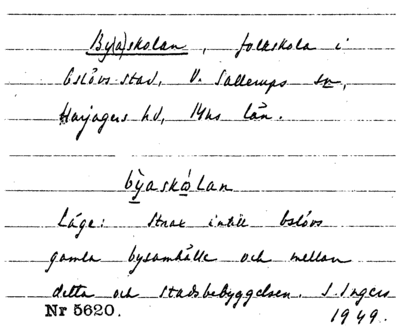 By(a)skolan, folkskola i
Eslövs stad, V. Sallerups sn,
Harjagers hd, Mhs län.
bỳaskólan
Läge: strax intill Eslövs
gamla bysamhälle och mellan
detta och stadsbebyggelsen. I. Ingers
Nr 5620. 1949.